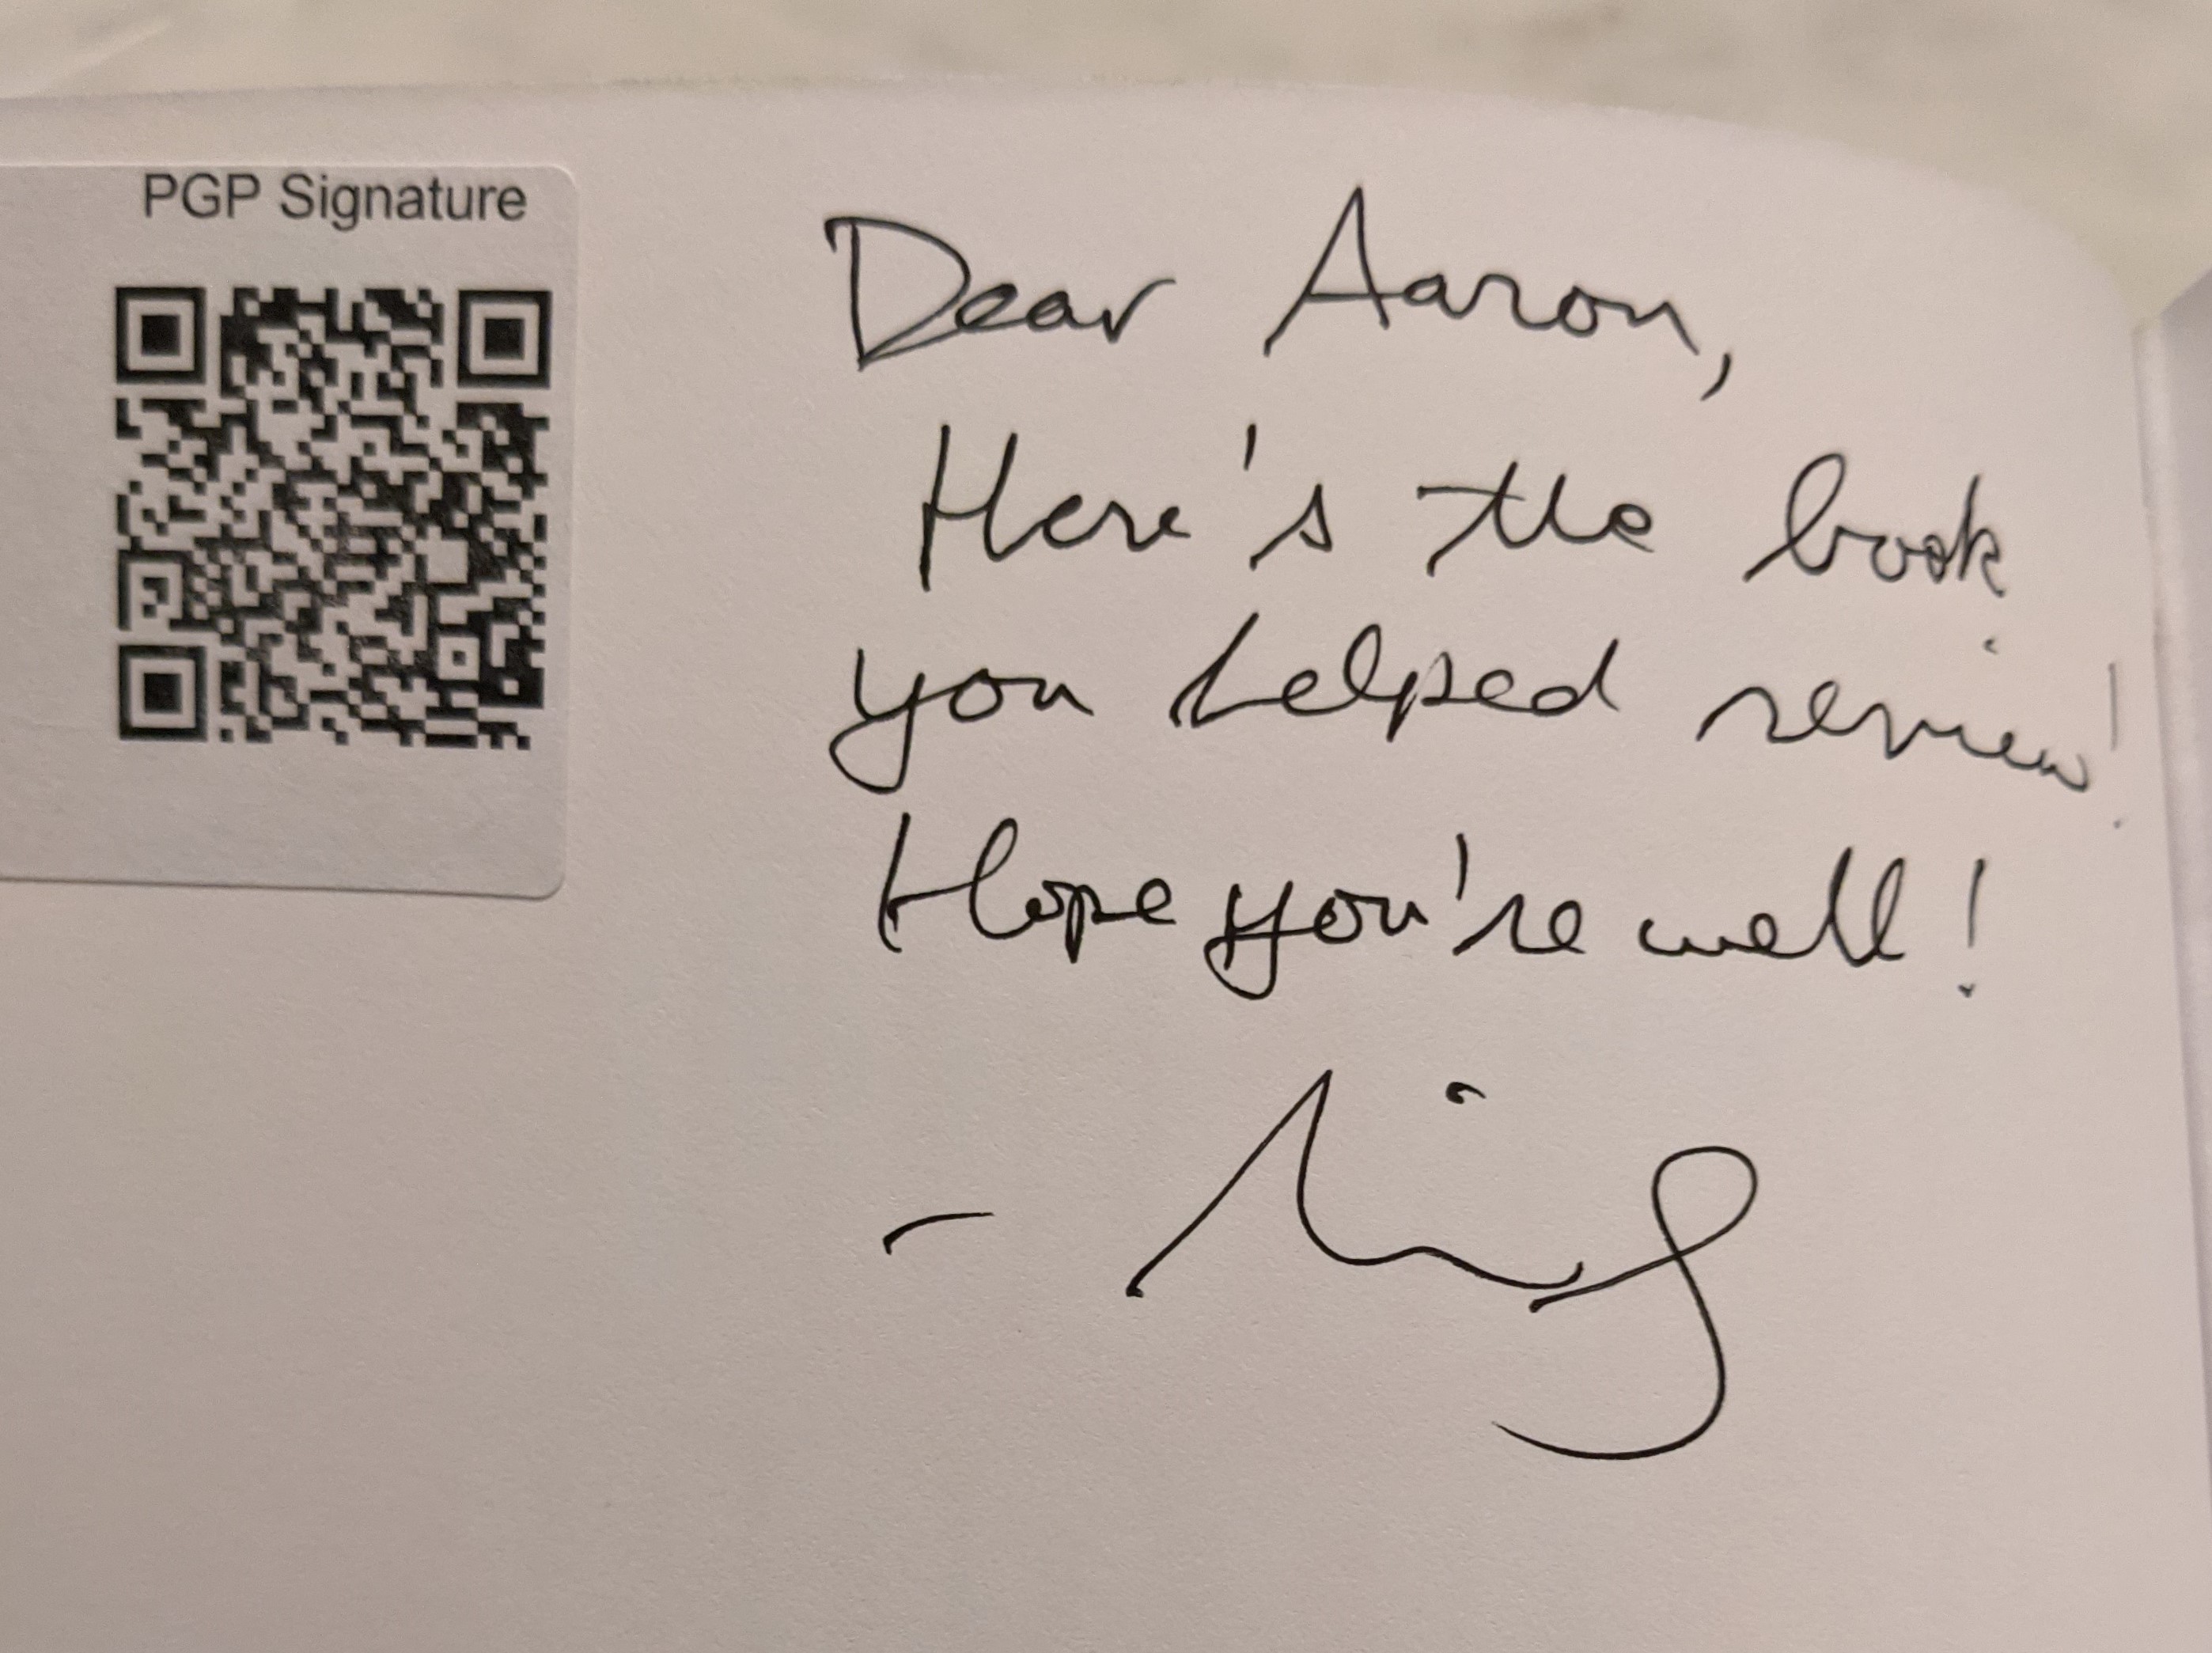 PGP Signature
Dear Aaron,
Here's the book
you helped review!
Hope you're well!
-